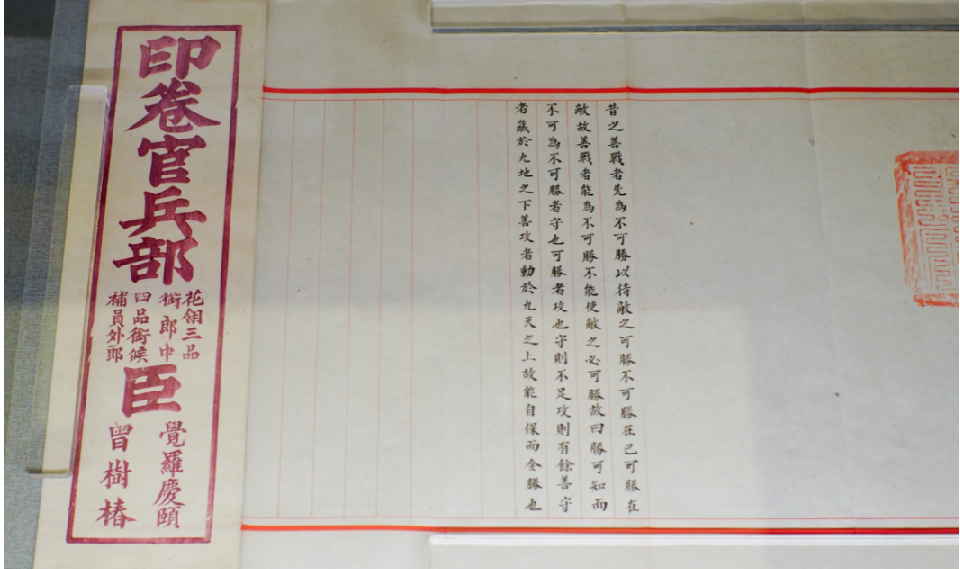 昔之善戰者先為不可勝以待敵之可勝不可勝在己可勝在
敵故善戰者能為不可勝不能使敵之必可勝故曰勝可知而
不可為不可勝者守也可勝者攻也守則不足攻則有餘善守
者藏於九地之下善攻者動於九天之上故能自保而全勝也
印卷官兵部
花翎三品
銜郎中
四品銜候
補員外郎
臣
覺羅慶頤
曾樹椿